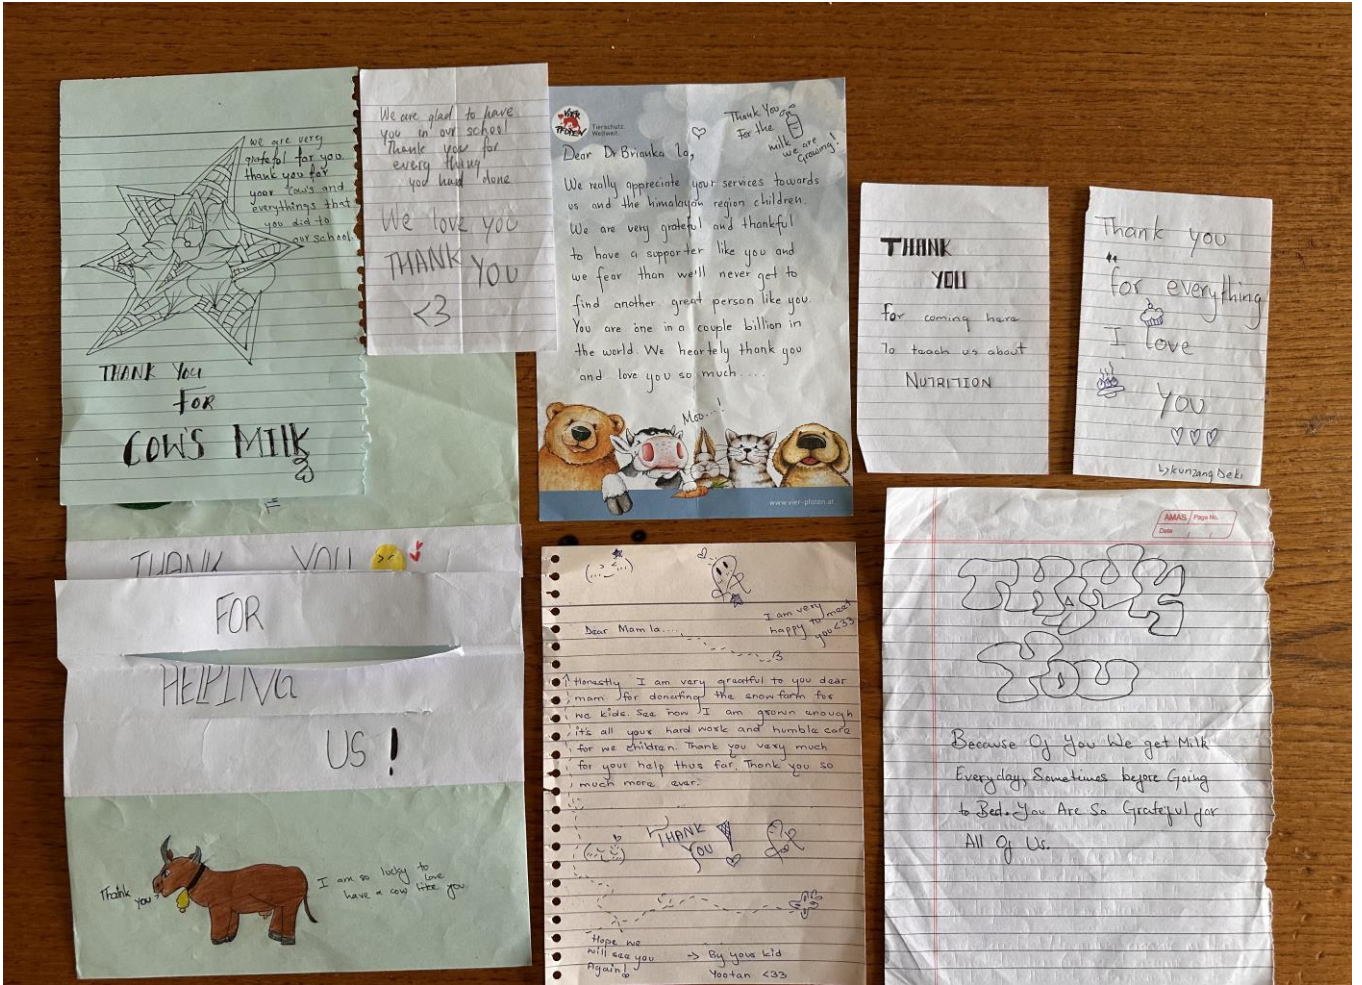 we are very
grateful for you
thank you for
your cows and
everythings that
you did to
our school.
THANK YOU
FOR
COW'S MILK
We are glad to have
you in our school
Thank you for
every thing
you had done
We love you
THANK YOU
<3
VIER
PFOTEN
Tierschutz
Weltweit
Thank You
For the
milk
we are
Growing!
Dear Dr Brianka la,
We really appreciate your services towards
us and the himalayan region children.
We are very grateful and thankful
to have a supporter like you and
we fear than we'll never get to
find another great person like you.
You are one in a couple billion in
the world. We heartely thank you
and love you so much....
Moo...!
www.vier-pfoten.at
THANK
YOU
for coming here
To teach us about
NUTRITION
Thank you
for everything
I love
YOU
by Kunzang Deki
THANK YOU
FOR
HELPING
US!
Thank
you
I am so lucky to
love
have a cow like you
Dear Mam la....
I am very
happy to meet
you <33
Honestly I am very greatful to you dear
mam for donating the snow farm for
we kids. See how I am grown enough
it's all your hard work and humble care
for we children. Thank you very much
for your help thus far. Thank you so
much more ever.
THANK
YOU
Hope we
will see you
Again!
→ By your kid
Yootan <33
AMAS Page No.
Date
THANK
YOU
Because Of You We get Milk
Everyday, Sometimes before Going
to Bed. You Are So Grateful for
All Of Us.